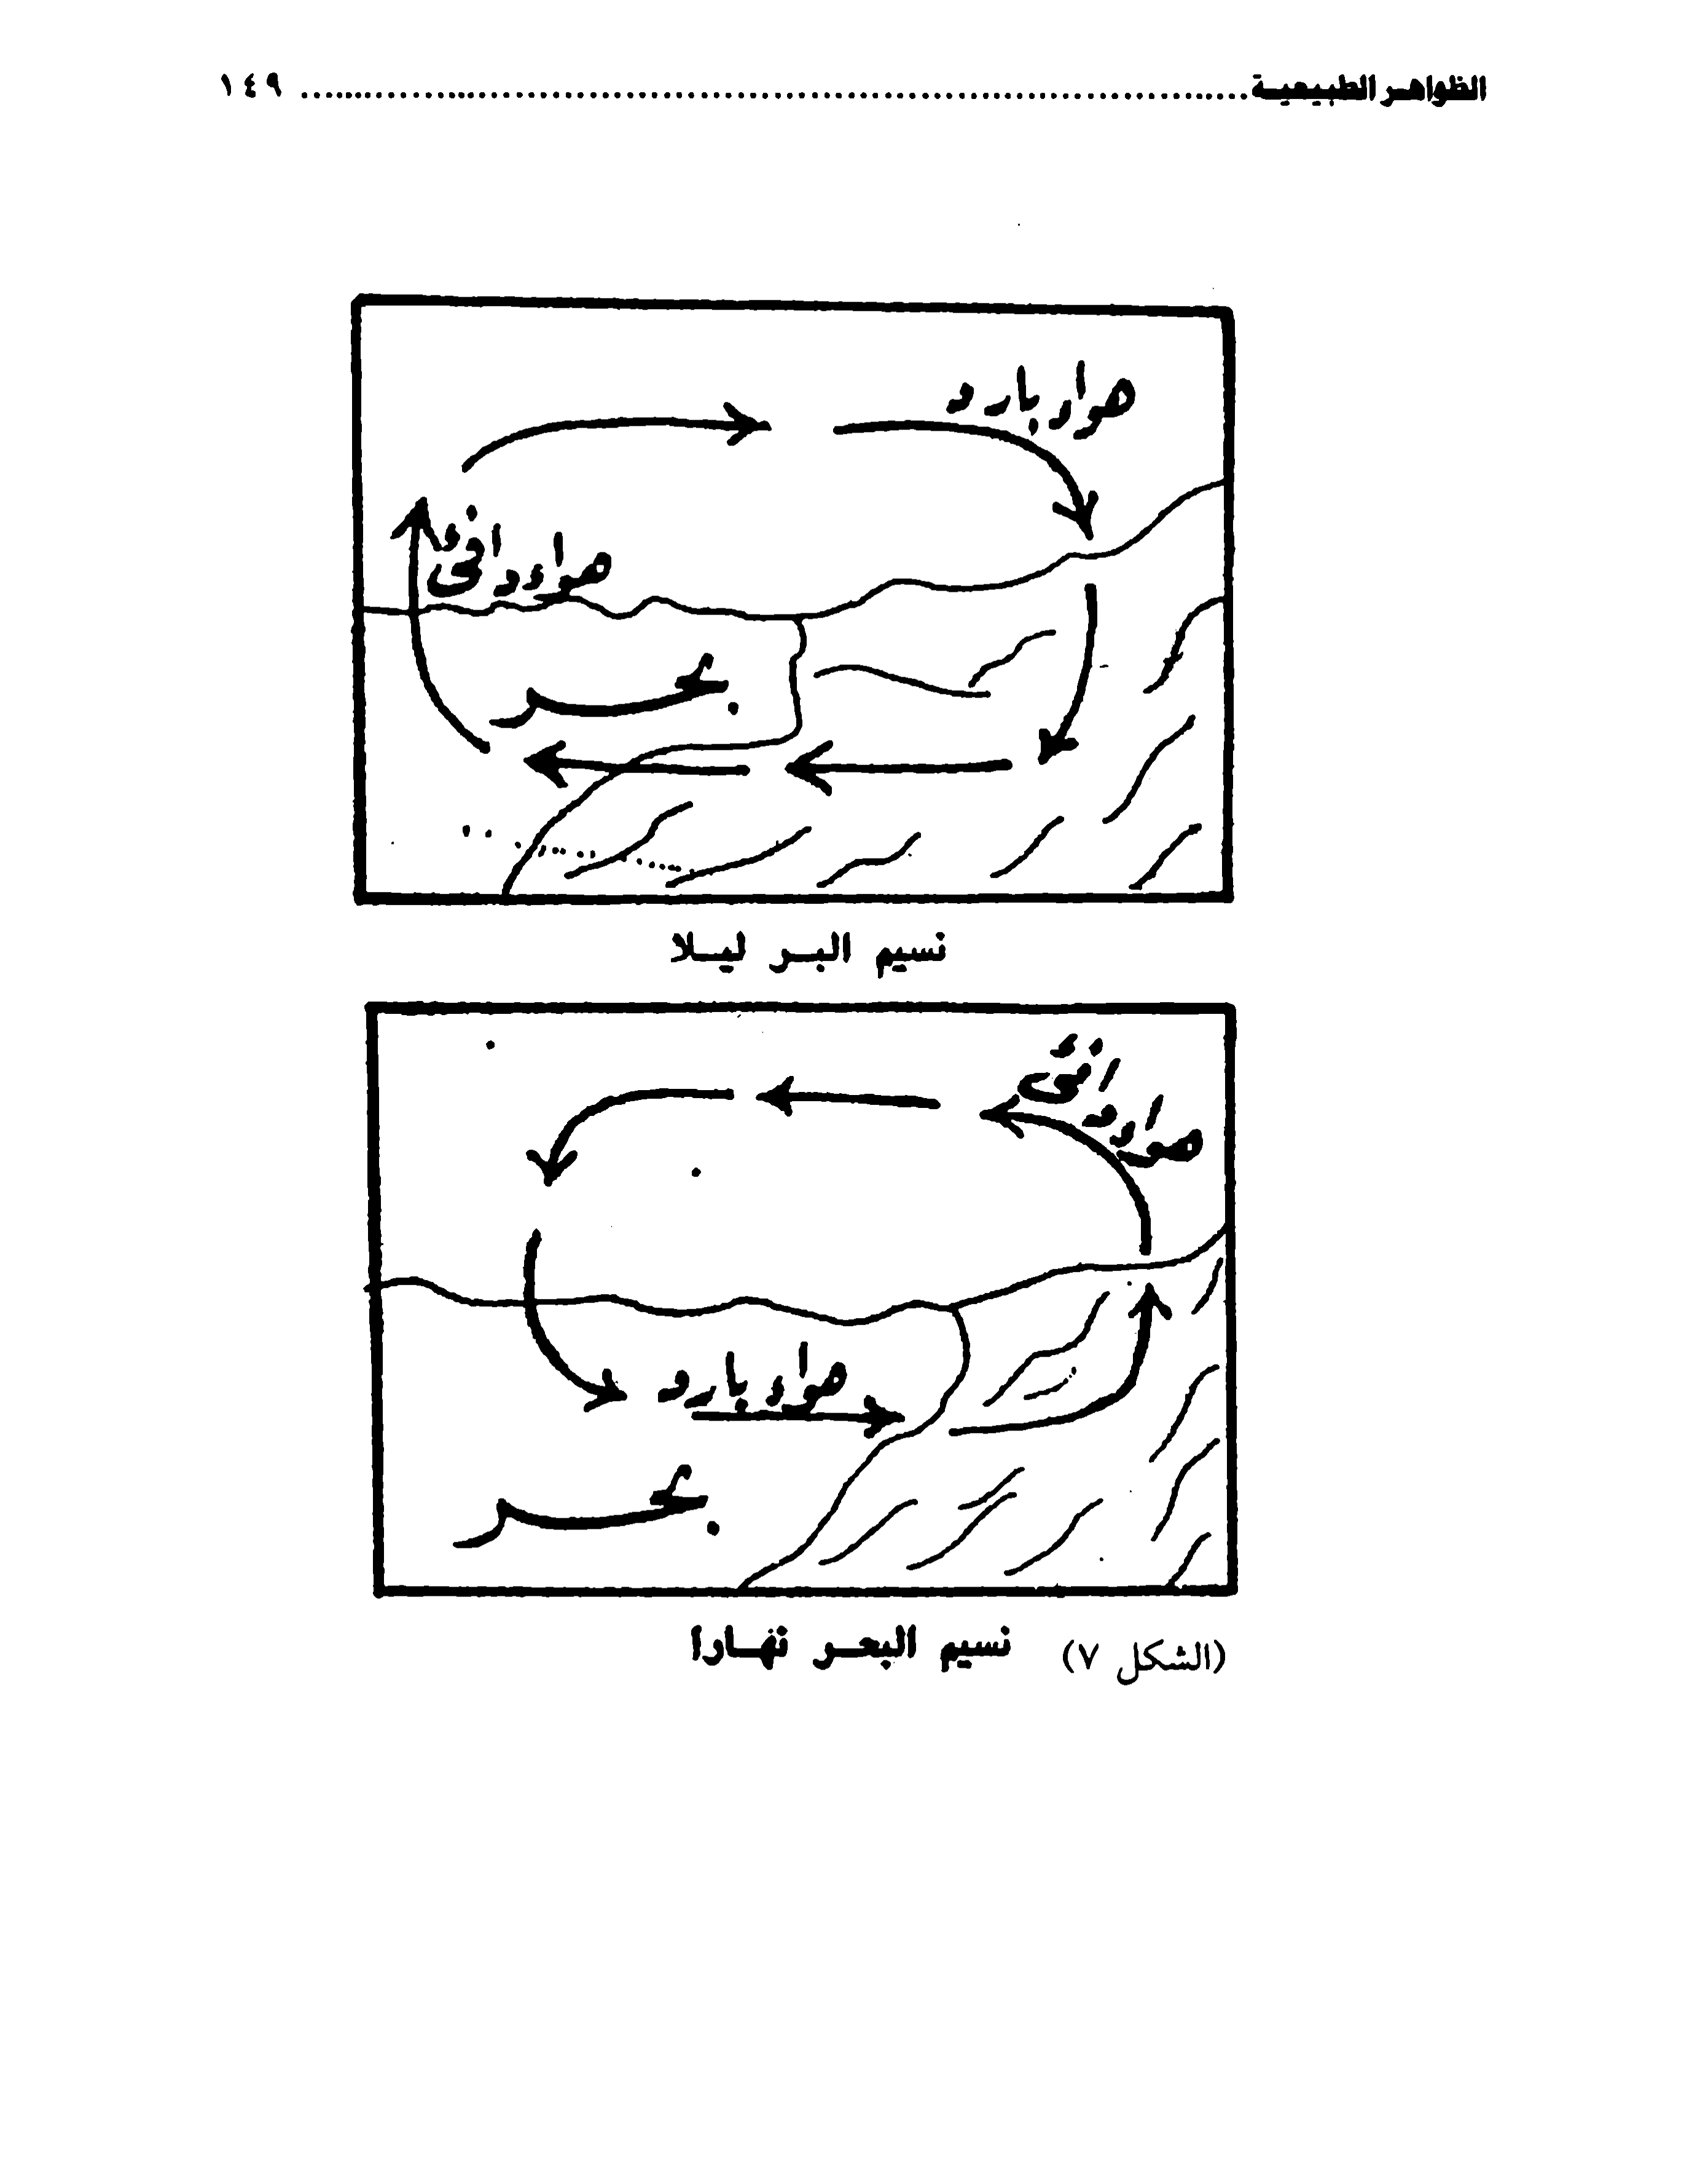 الظواهر الطبيعية ........................................ ١٤٩
هواء بارد
هواء دافئ
بحر
نسيم البر ليلا
هواء دافئ
هواء بارد
بحر
(الشكل ٧) نسيم البحر نهارا